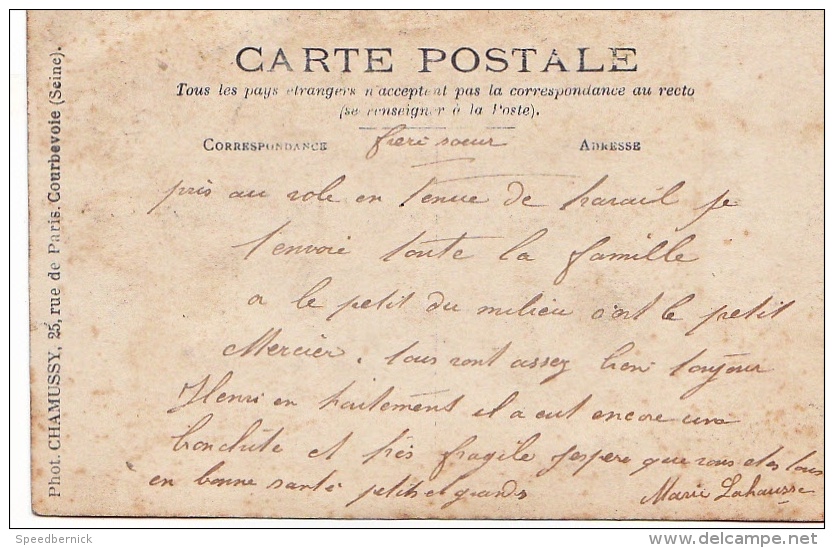 CARTE POSTALE
Tous les pays étrangers n'acceptent pas la correspondance au recto
(se renseigner à la Poste).
CORRESPONDANCE
ADRESSE
frere soeur
pris au vole en tenue de travail je
t'envoie toute la famille
le petit du milieu c'est le petit
Mercier. tous vont assez bien toujour
Henri en traitement il a eut encore une
bronchite et très fragile j'espere que vous etes tous
en bonne santé petits et grands
Marie Lahausse
Phot. CHAMUSSY, 25, rue de Paris. Courbevoie (Seine).
Speedbernick
delcampe.net